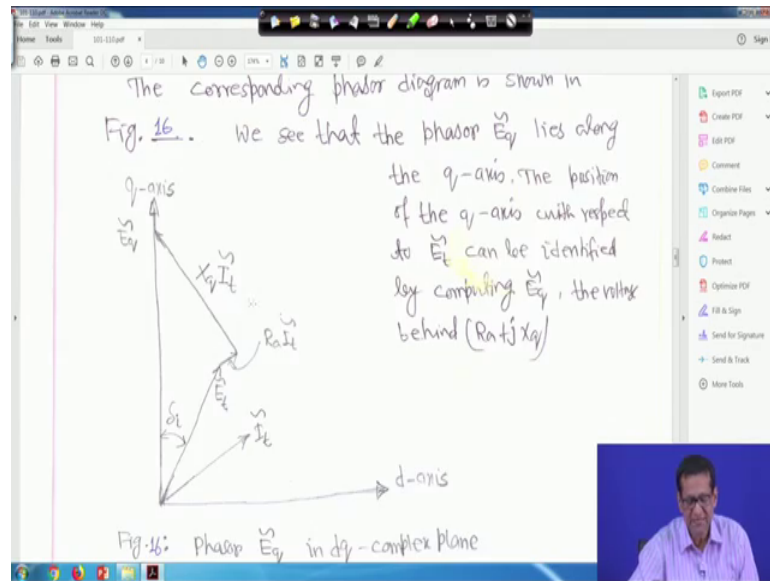 101-110.pdf - Adobe Acrobat Reader DC
File Edit View Window Help
Home Tools 101-110.pdf × Sign
The corresponding phasor diagram is shown in
Fig. 16. . We see that the phasor Ẽq lies along
the q-axis. The position
of the q-axis with respect
to Ẽt can be identified
by computing Ẽq, the voltage
behind (Ra+jXq)
q-axis
Ẽq
XqĨt
RaĨt
Ẽt
δi
Ĩt
d-axis
Fig.16: Phasor Ẽq in dq-complex plane
Export PDF
Create PDF
Edit PDF
Comment
Combine Files
Organize Pages
Redact
Protect
Optimize PDF
Fill & Sign
Send for Signature
Send & Track
More Tools